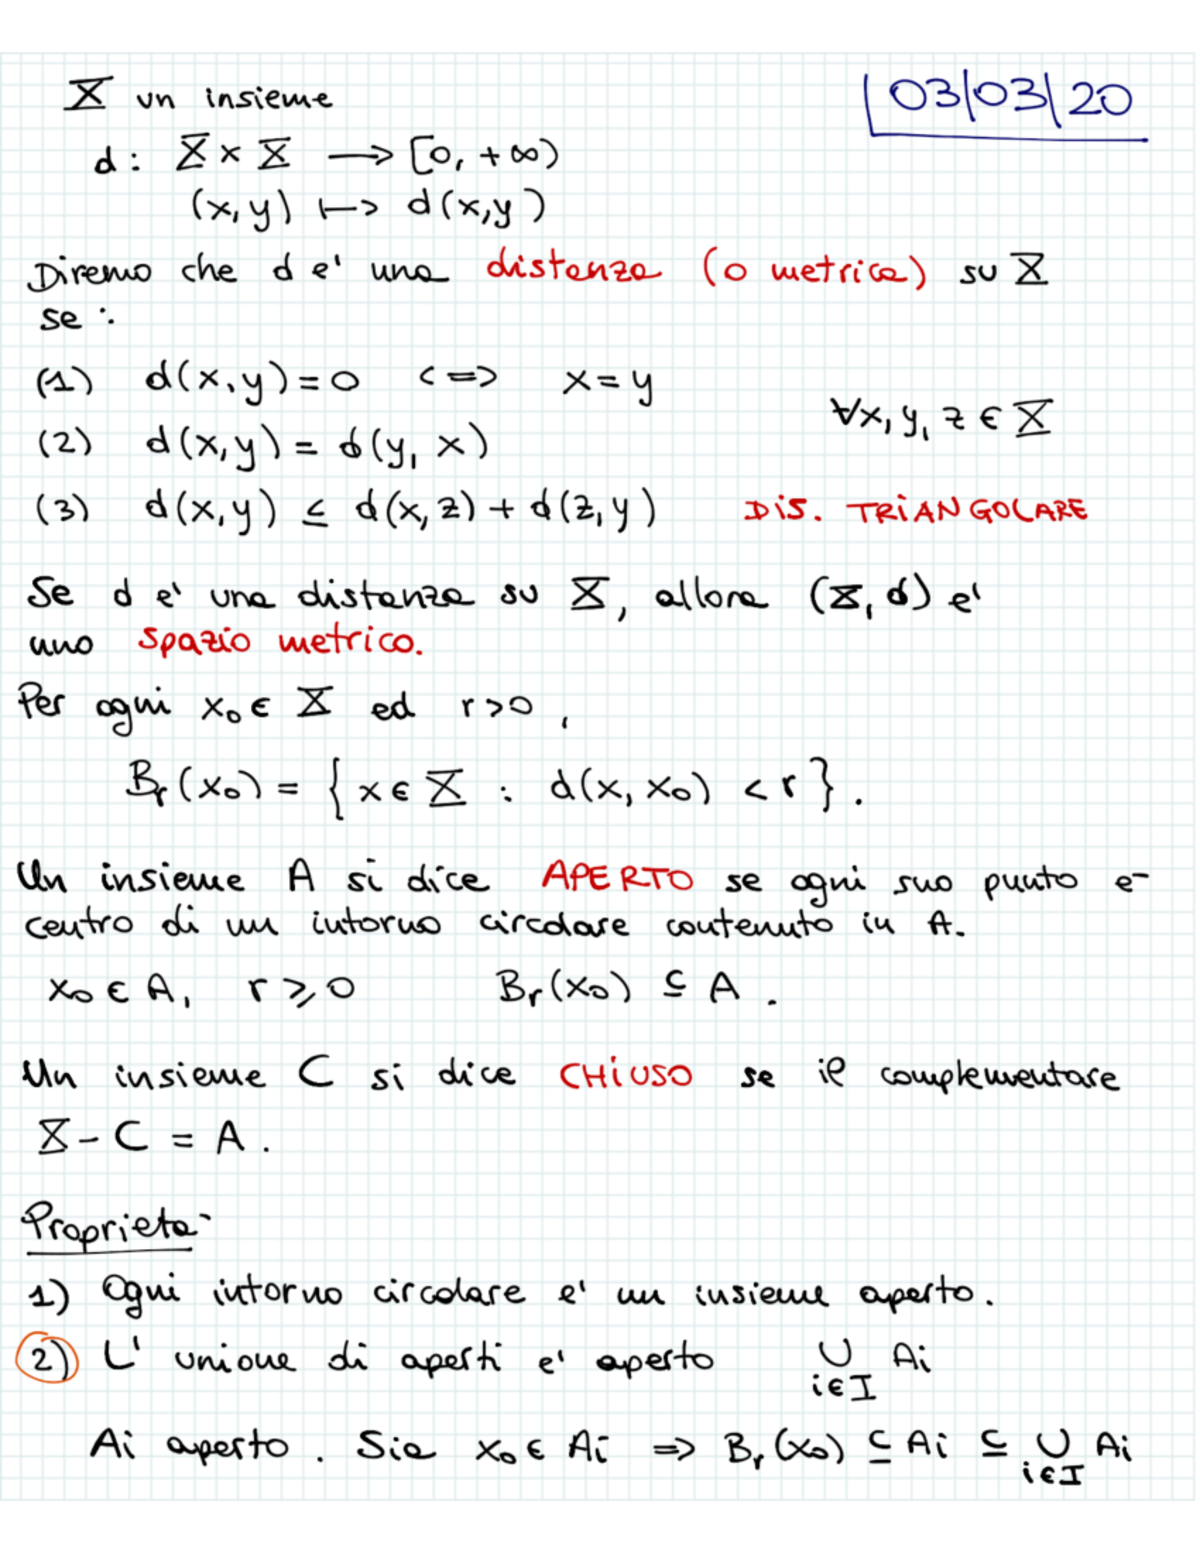 X un insieme
03/03/20
d: X × X → [0, +∞)
(x, y) ↦ d(x,y)
Diremo che d e' una distanza (o metrica) su X
se :
(1) d(x,y) = 0 <=> x = y
∀x, y, z ∈ X
(2) d(x,y) = d(y, x)
(3) d(x,y) ≤ d(x,z) + d(z,y) DIS. TRIANGOLARE
Se d e' una distanza su X, allora (X, d) e'
uno spazio metrico.
Per ogni x₀ ∈ X ed r>0,
Bᵣ(x₀) = { x ∈ X : d(x, x₀) < r }.
Un insieme A si dice APERTO se ogni suo punto e-
centro di un intorno circolare contenuto in A.
x₀ ∈ A, r ≥ 0 Bᵣ(x₀) ⊆ A .
Un insieme C si dice CHIUSO se il complementare
X - C = A .
Proprieta-
1) Ogni intorno circolare e' un insieme aperto.
2) L' unione di aperti e' aperto ∪ Ai
i∈I
Ai aperto . Sia x₀ ∈ Ai => Bᵣ(x₀) ⊆ Ai ⊆ ∪ Ai
i∈I